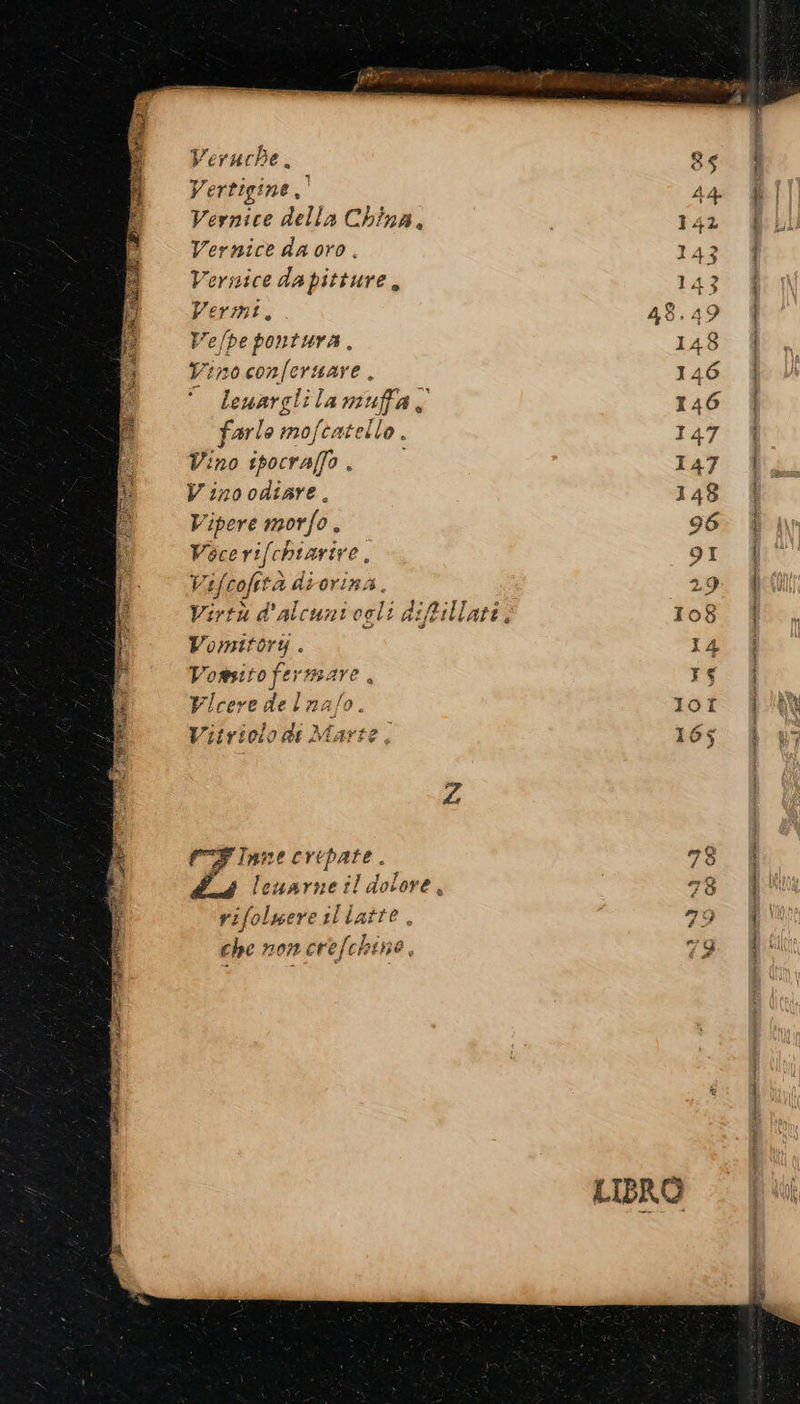 Veruche. 85
Vertigine. 44
Vernice della China. 142
Vernice da oro. 143
Vernice da pitture. 143
Vermi. 48.49
Veſpe pontura. 148
Vino conſeruare. 146
leuargli la muffa. 146
farlo moſcatello. 147
Vino ipocraſſo. 147
Vino odiare. 148
Vipere morſo. 96
Voce riſchiarire. 91
Viſcoſità di orina. 29
Virtù d'alcuni ogli diſtillati. 108
Vomitorij. 14
Vomito fermare. 15
Vlcere del naſo. 101
Vitriolo di Marte. 165
Z
ZInne crepate. 78
leuarne il dolore. 78
riſoluere il latte. 79
che non creſchino. 79
LIBRO